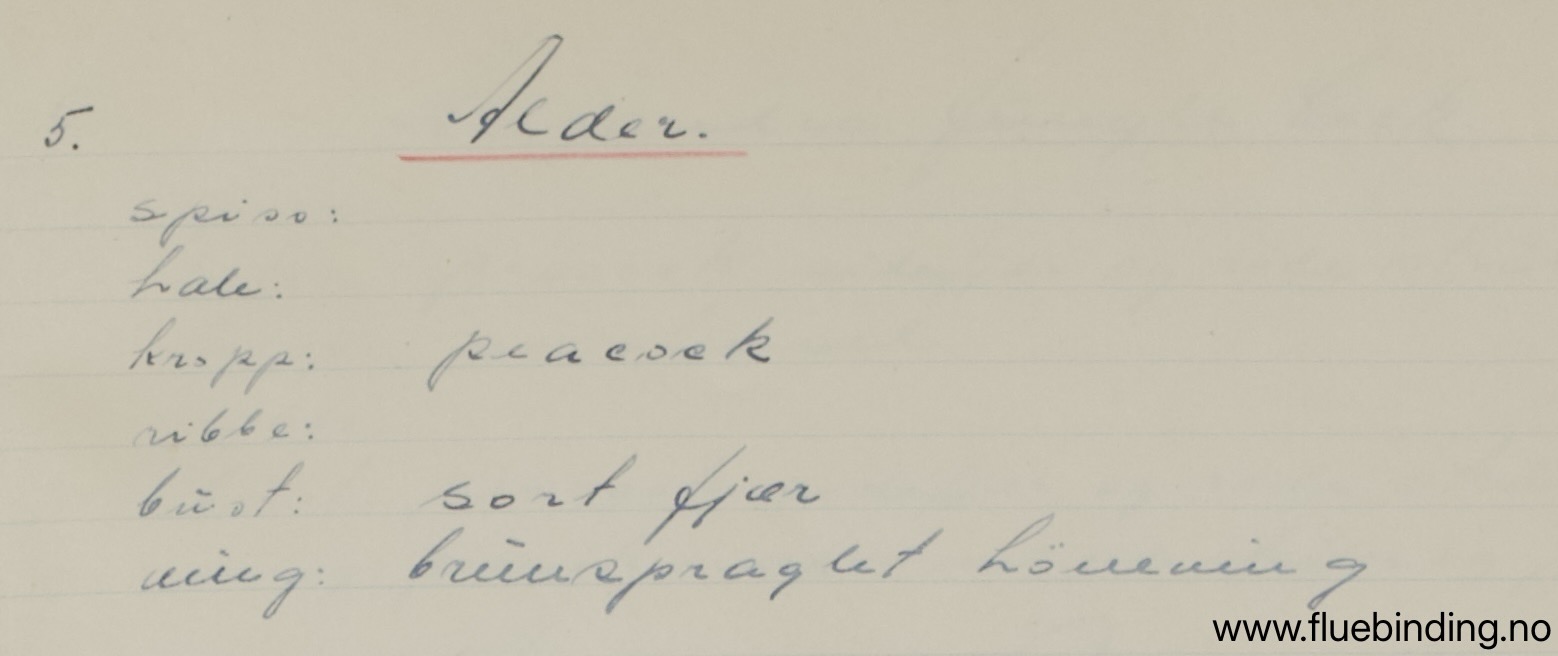 5. Alder.
spiss:
hale:
kropp: peacock
ribbe:
bŭst: sort fjær
ving: brŭnspraglet höneving
www.fluebinding.no